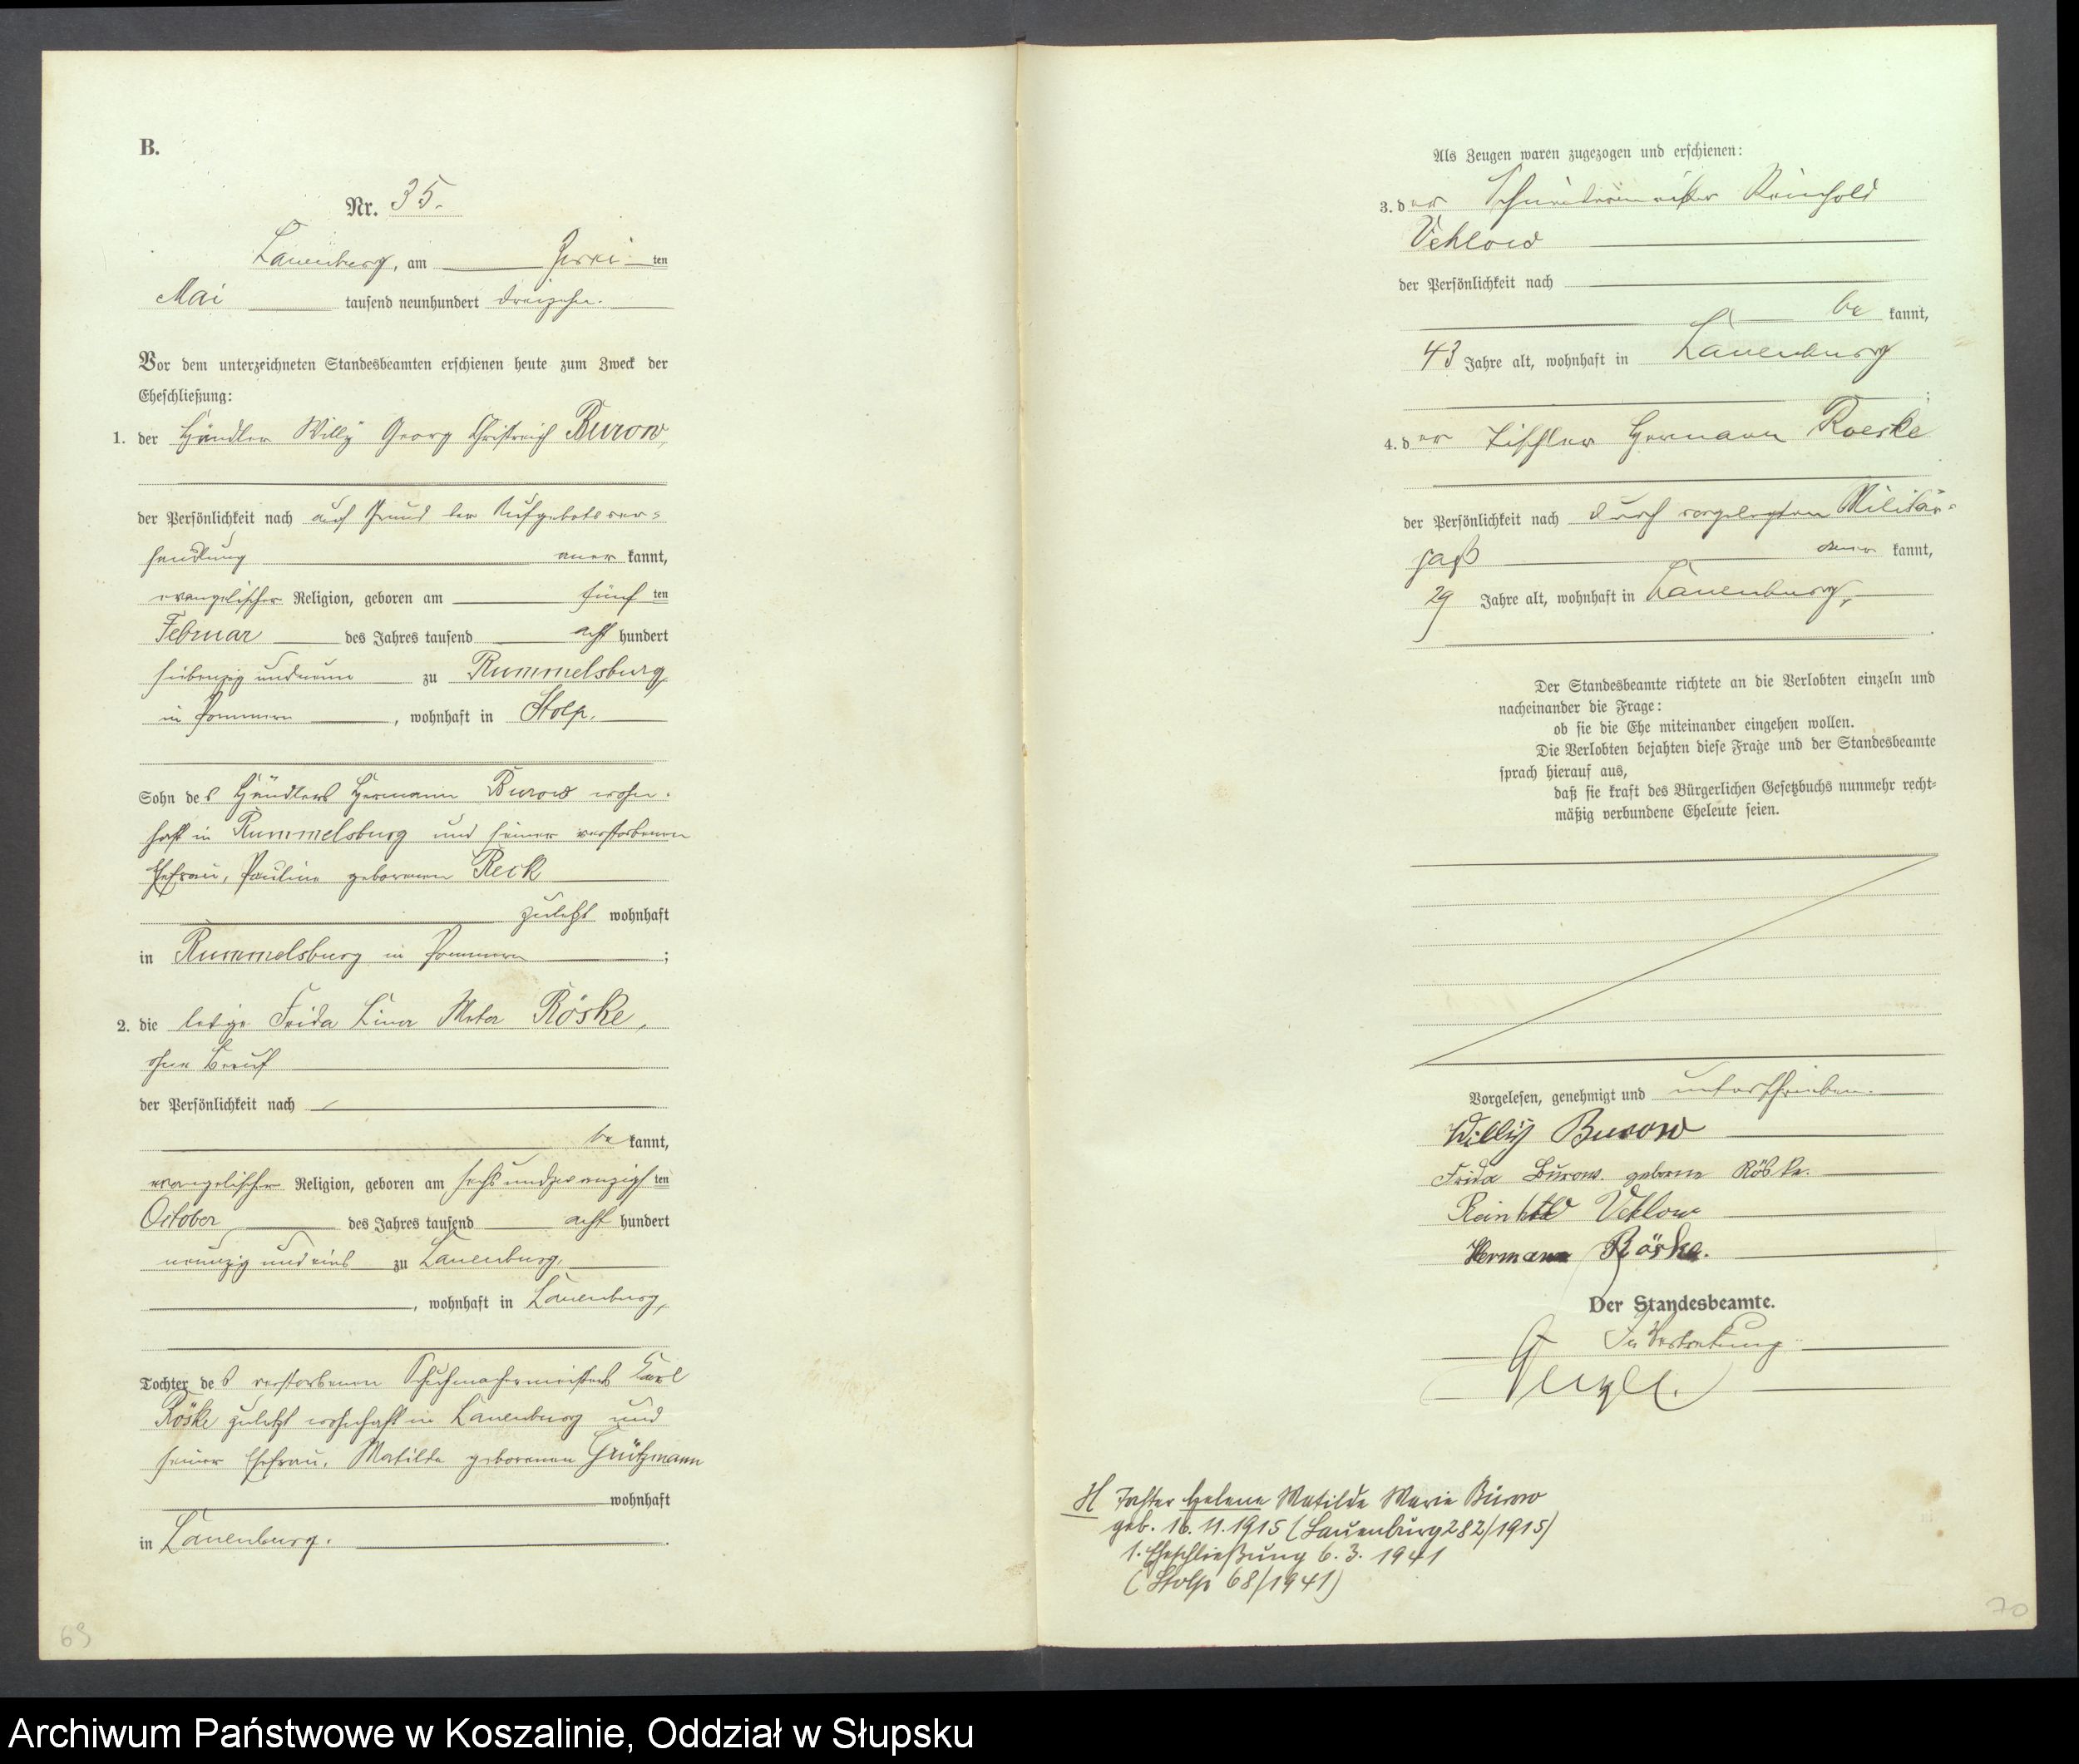 B.
Nr. 35.
Lauenburg, am zwei ten
Mai tausend neunhundert dreizehn.
Vor dem unterzeichneten Standesbeamten erschienen heute zum Zweck der
Eheschließung:
1. der Händler Willy Georg Burow,
der Persönlichkeit nach auf Grund der Aufgebotsver-
handlung aner kannt,
evangelischer Religion, geboren am fünf ten
Februar des Jahres tausend acht hundert
siebenzig und neun zu Rummelsburg
in Pommern, wohnhaft in Stolp.
Sohn des Händlers Hermann Burow wohn-
haft in Rummelsburg und seiner verstorbenen
Ehefrau, Pauline geborenen Reck
zuletzt wohnhaft
in Rummelsburg in Pommern;
2. die ledige Frida Lina Meta Röske,
ohne Beruf
der Persönlichkeit nach
be kannt,
evangelischer Religion, geboren am sechs und zwanzigsten
October des Jahres tausend acht hundert
neunzig und eins zu Lauenburg,
, wohnhaft in Lauenburg,
Tochter des verstorbenen Schuhmachermeisters Carl
Röske zuletzt wohnhaft in Lauenburg und
seiner Ehefrau, Matilde geborenen Grützmann
wohnhaft
in Lauenburg.
69
Als Zeugen waren zugezogen und erschienen:
3. der Schneidermeister Reinhold
Vehlow
der Persönlichkeit nach
be kannt,
43 Jahre alt, wohnhaft in Lauenburg
;
4. der Tischler Hermann Roeske
der Persönlichkeit nach durch vorgelegten Militär-
paß aner kannt,
29 Jahre alt, wohnhaft in Lauenburg,
Der Standesbeamte richtete an die Verlobten einzeln und
nacheinander die Frage:
ob sie die Ehe miteinander eingehen wollen.
Die Verlobten bejahten diese Frage und der Standesbeamte
sprach hierauf aus,
daß sie kraft des Bürgerlichen Gesetzbuchs nunmehr recht-
mäßig verbundene Eheleute seien.
Vorgelesen, genehmigt und unterschrieben.
Willy Burow
Frida Burow. geborne Röske.
Reinhold Vehlow
Hermann Röske.
Der Standesbeamte.
In Vertretung
H Tochter Helene Matilde Marie Burow
geb. 16. 11. 1915 (Lauenburg 282/1915)
1. Eheschließung 6. 3. 1941
(Stolp 68/1941)
70
Archiwum Państwowe w Koszalinie, Oddział w Słupsku